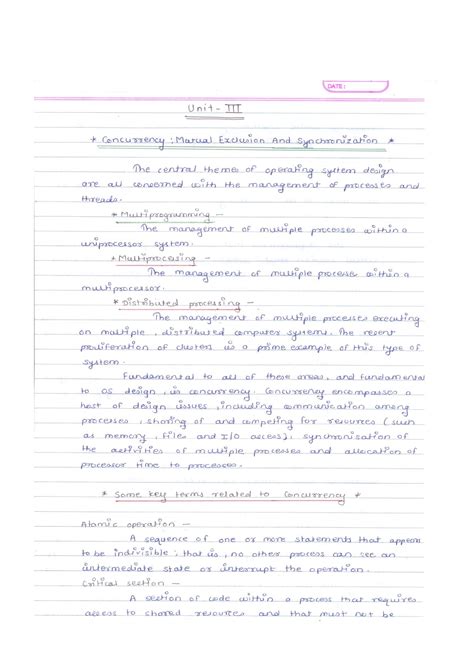 DATE:
Unit - III
* Concurrency : Mutual Exclusion And Synchronization *
The central themes of operating system design
are all concerned with the management of processes and
threads.
* Multiprogramming -
The management of multiple processes within a
uniprocessor system.
* Multiprocessing -
The management of multiple processes within a
multiprocessor.
* Distributed processing -
The management of multiple processes executing
on multiple, distributed computer systems. The recent
proliferation of clusters is a prime example of this type of
system.
Fundamental to all of these areas, and fundamental
to OS design, is concurrency. Concurrency encompasses a
host of design issues, including communication among
processes, sharing of and competing for resources (such
as memory, files and I/O access), synchronization of
the activities of multiple processes and allocation of
processor time to processes.
* Some key terms related to Concurrency *
Atomic operation -
A sequence of one or more statements that appears
to be indivisible; that is, no other process can see an
intermediate state or interrupt the operation.
Critical section -
A section of code within a process that requires
access to shared resources and that must not be